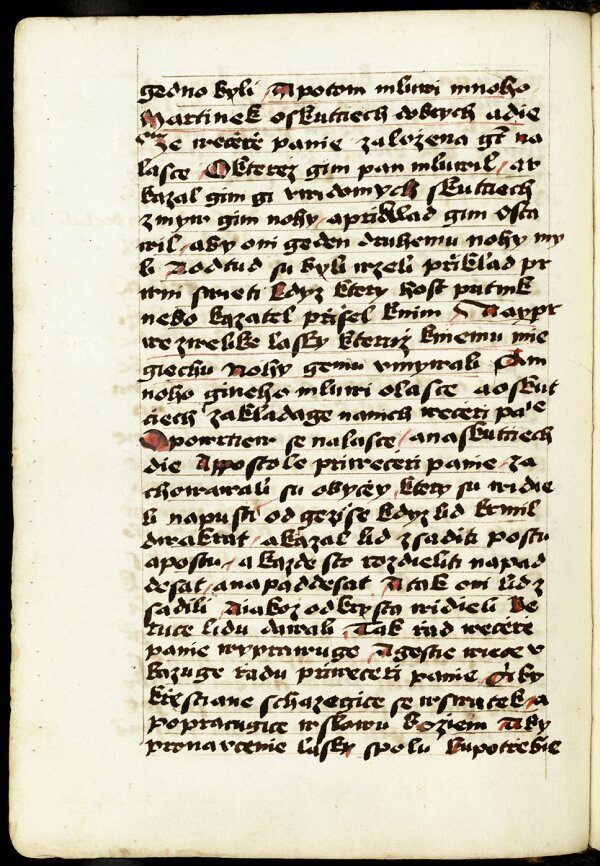 gedno byli A potom mluwi mnoho
Martinek o skutciech dobrych a die
ze weczerze panie zalozena gt na
lasce O kterez gim pan mluwil / a v
kazal gim gi v widomych skutciech
zmyw gim nohy / a przieklad gim osta
wil / aby oni geden druhemu nohy my
li A odtud su byli wzeli przieklad pr
wni swieti kdyz ktery host putnik
nebo kazatel przissel knim
we zwelike lasky kteruz kniemu mie
giechu nohy gemu vmywali A m
noho gineho mluwi o lasce a o skut
ciech zakladage na nich weczeri panie
se na lasce / a na skutciech
die Appostole przi weczeri panie / za
chowawali su obyczey / ktery su widie
li na pusti od gezisse kdyz lid krmil
dwakrat / a kazal lid zsaditi po stu
a po stu / a kazde sto rozdieliti na pad
desat / a na paddesat A tak oni lid z
sadili A iakoz od krysta widieli
luce lidu dawali Tak rad weczerze
panie wyprawuge A gestie wiece v
kazuge radu przi weczeri panie Aby
krzestiane schazegice se w swatek / a
popracugice w slowu boziem Aby
pro nauczenie lasky spolu